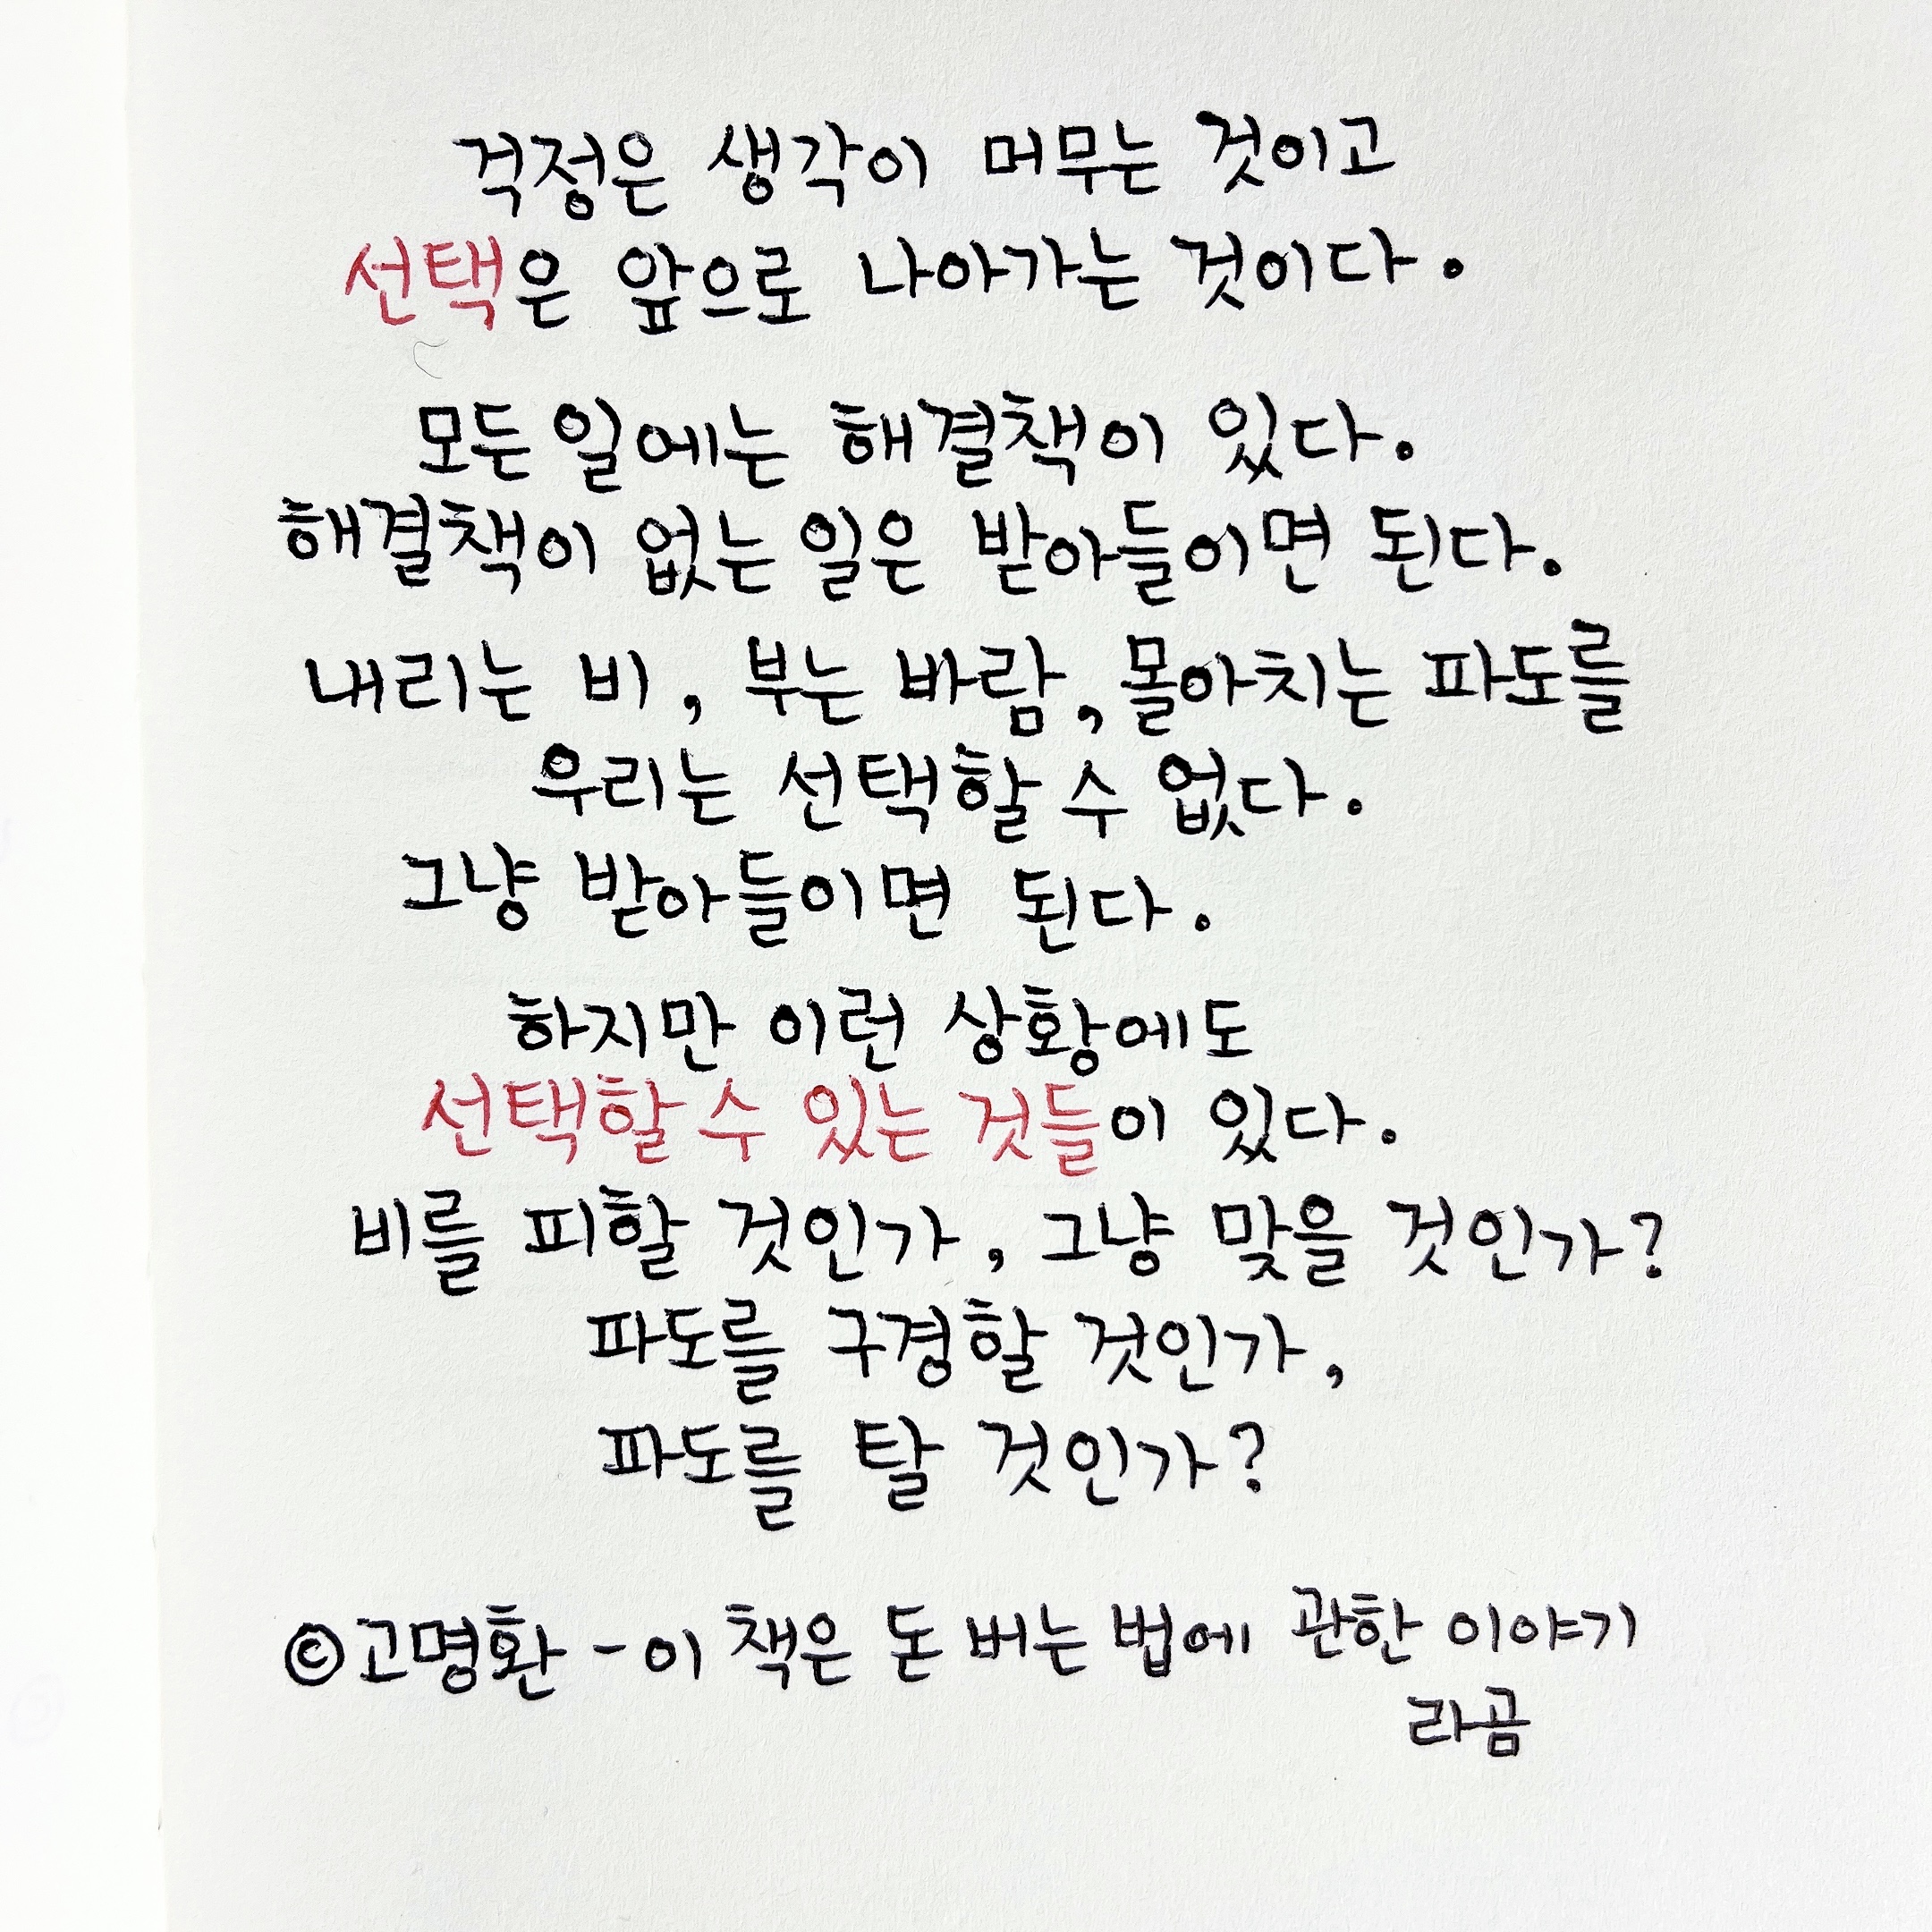 걱정은 생각이 머무는 것이고
선택은 앞으로 나아가는 것이다.
모든 일에는 해결책이 있다.
해결책이 없는 일은 받아들이면 된다.
내리는 비, 부는 바람, 몰아치는 파도를
우리는 선택할 수 없다.
그냥 받아들이면 된다.
하지만 이런 상황에도
선택할 수 있는 것들이 있다.
비를 피할 것인가, 그냥 맞을 것인가?
파도를 구경할 것인가,
파도를 탈 것인가?
©고명환 - 이 책은 돈 버는 법에 관한 이야기
라곰